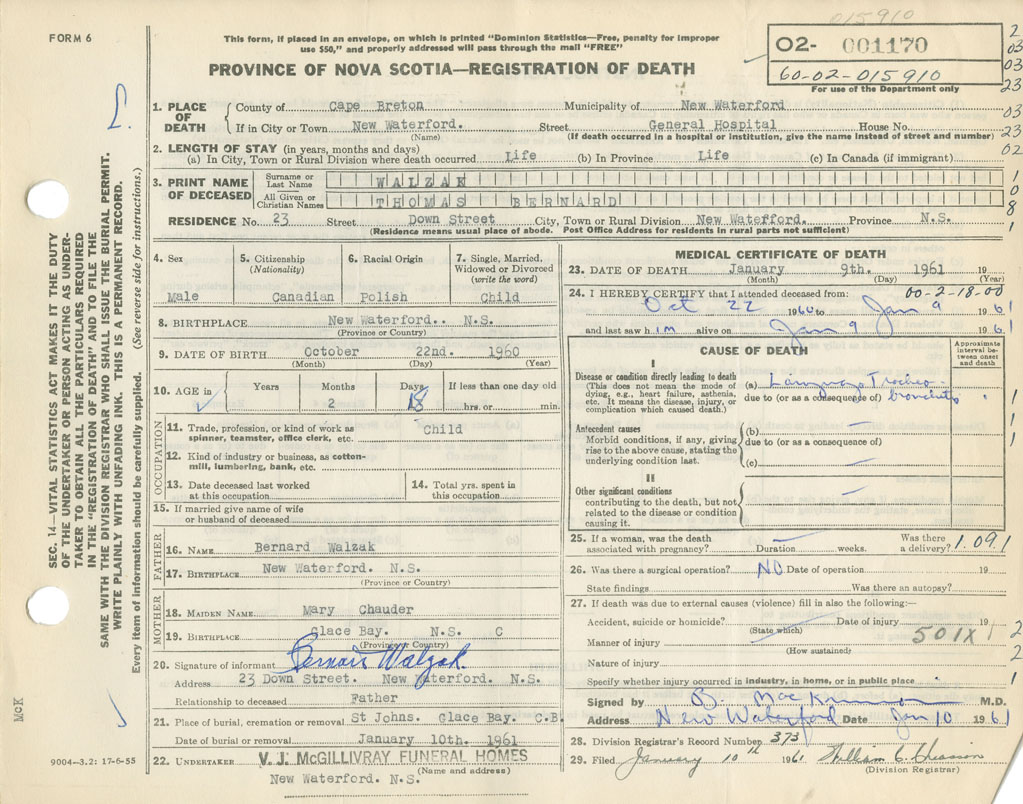 015910
FORM 6
This form, if placed in an envelope, on which is printed "Dominion Statistics—Free, penalty for improper
use $50," and properly addressed will pass through the mail "FREE"
02- 001170
60-02-015910
For use of the Department only
PROVINCE OF NOVA SCOTIA—REGISTRATION OF DEATH
2
03
03
23
03
23
02
1
0
8
1
SEC. 14—VITAL STATISTICS ACT MAKES IT THE DUTY
OF THE UNDERTAKER OR PERSON ACTING AS UNDER-
TAKER TO OBTAIN ALL THE PARTICULARS REQUIRED
IN THE "REGISTRATION OF DEATH" AND TO FILE THE
SAME WITH THE DIVISION REGISTRAR WHO SHALL ISSUE THE BURIAL PERMIT.
WRITE PLAINLY WITH UNFADING INK. THIS IS A PERMANENT RECORD.
Every item of information should be carefully supplied. (See reverse side for instructions.)
1. PLACE OF DEATH
County of Cape Breton Municipality of New Waterford
If in City or Town New Waterford. Street General Hospital House No.
(Name) (If death occurred in a hospital or institution, give the name instead of street and number)
2. LENGTH OF STAY (in years, months and days)
(a) In City, Town or Rural Division where death occurred Life (b) In Province Life (c) In Canada (if immigrant)
3. PRINT NAME OF DECEASED
Surname or Last Name WALZAK
All Given or Christian Names THOMAS BERNARD
RESIDENCE No. 23 Street Down Street City, Town or Rural Division New Waterford. Province N.S.
(Residence means usual place of abode. Post Office Address for residents in rural parts not sufficient)
4. Sex 5. Citizenship 6. Racial Origin 7. Single, Married,
(Nationality) Widowed or Divorced
(write the word)
Male Canadian Polish Child
8. BIRTHPLACE New Waterford.. N.S.
(Province or Country)
9. DATE OF BIRTH October 22nd. 1960
(Month) (Day) (Year)
10. AGE in Years Months Days If less than one day old
2 18 hrs. or min.
OCCUPATION
11. Trade, profession, or kind of work as Child
spinner, teamster, office clerk, etc.
12. Kind of industry or business, as cotton-
mill, lumbering, bank, etc.
13. Date deceased last worked 14. Total yrs. spent in
at this occupation this occupation
15. If married give name of wife
or husband of deceased
FATHER
16. NAME Bernard Walzak
17. BIRTHPLACE New Waterford. N.S.
(Province or Country)
MOTHER
18. MAIDEN NAME Mary Chauder
19. BIRTHPLACE Glace Bay. N.S. C
(Province or Country)
20. Signature of informant Walzak
Address 23 Down Street. New Waterford. N.S.
Relationship to deceased Father
21. Place of burial, cremation or removal St Johns. Glace Bay. C.B.
Date of burial or removal January 10th. 1961
22. UNDERTAKER V. J. McGILLIVRAY FUNERAL HOMES
(Name and address)
New Waterford. N.S.
McK
9004—3.2: 17-6-55
MEDICAL CERTIFICATE OF DEATH
23. DATE OF DEATH January 9th. 1961 19
(Month) (Day) (Year)
24. I HEREBY CERTIFY that I attended deceased from: 00-2-18-00
Oct 22 1960 to Jan 9 1961
and last saw him alive on Jan 9 1961
CAUSE OF DEATH
Approximate
interval be-
tween onset
and death
I
Disease or condition directly leading to death
(This does not mean the mode of
dying, e.g., heart failure, asthenia,
etc. It means the disease, injury, or
complication which caused death.)
(a) Laryngo Tracheo
due to (or as a consequence of) bronchitis
1
Antecedent causes
Morbid conditions, if any, giving
rise to the above cause, stating the
underlying condition last.
(b)
due to (or as a consequence of)
(c)
1
1
II
Other significant conditions
contributing to the death, but not
related to the disease or condition
causing it.
25. If a woman, was the death Was there
associated with pregnancy? Duration weeks. a delivery? 1.091
26. Was there a surgical operation? NO Date of operation 19
State findings Was there an autopsy?
27. If death was due to external causes (violence) fill in also the following:—
Accident, suicide or homicide? Date of injury 19
(State which)
Manner of injury 501X 1
(How sustained)
2
2
Nature of injury
Specify whether injury occurred in industry, in home, or in public place
1
Signed by B. MacKinnon M.D.
Address New Waterford Date Jan 10 1961
28. Division Registrar's Record Number 373
29. Filed January 10th 1961 William C.
(Division Registrar)